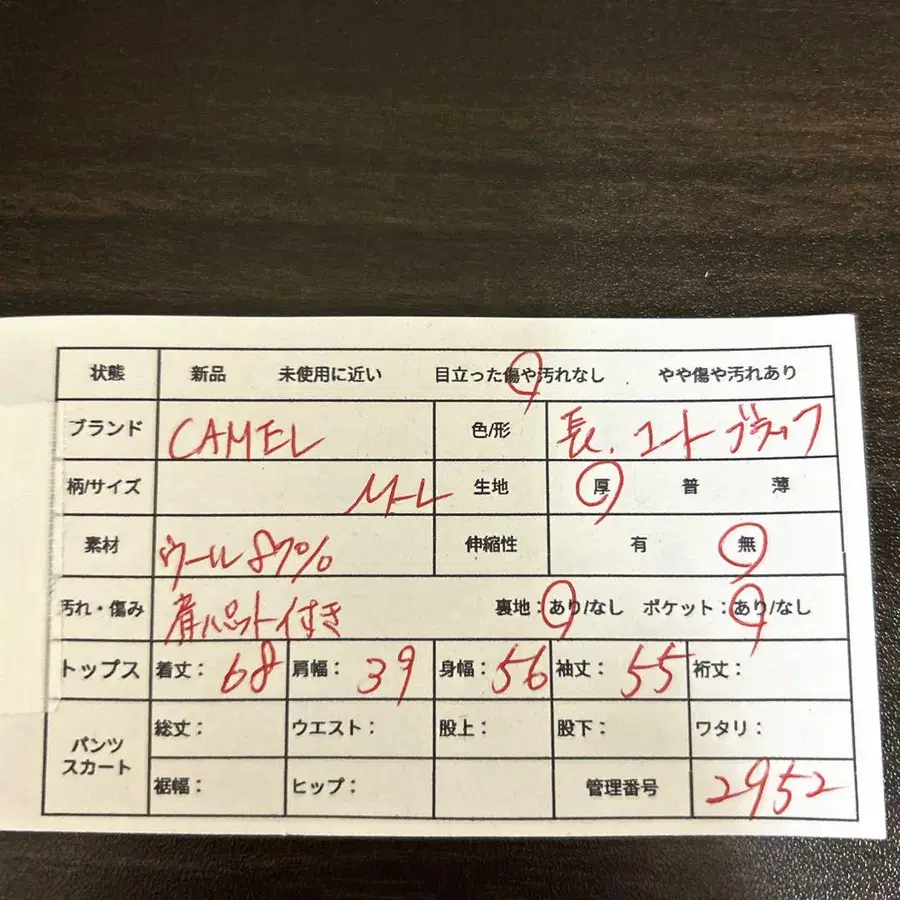 状態 新品 未使用に近い 目立った傷や汚れなし やや傷や汚れあり
ブランド CAMEL 色/形 長. コート ブラック
柄/サイズ M-L 生地 厚 普 薄
素材 ウール 87% 伸縮性 有 無
汚れ・傷み 肩パット付き 裏地:あり/なし ポケット:あり/なし
トップス 着丈: 68 肩幅: 39 身幅: 56 袖丈: 55 裄丈:
パンツ 総丈: ウエスト: 股上: 股下: ワタリ:
スカート 裾幅: ヒップ: 管理番号 2952